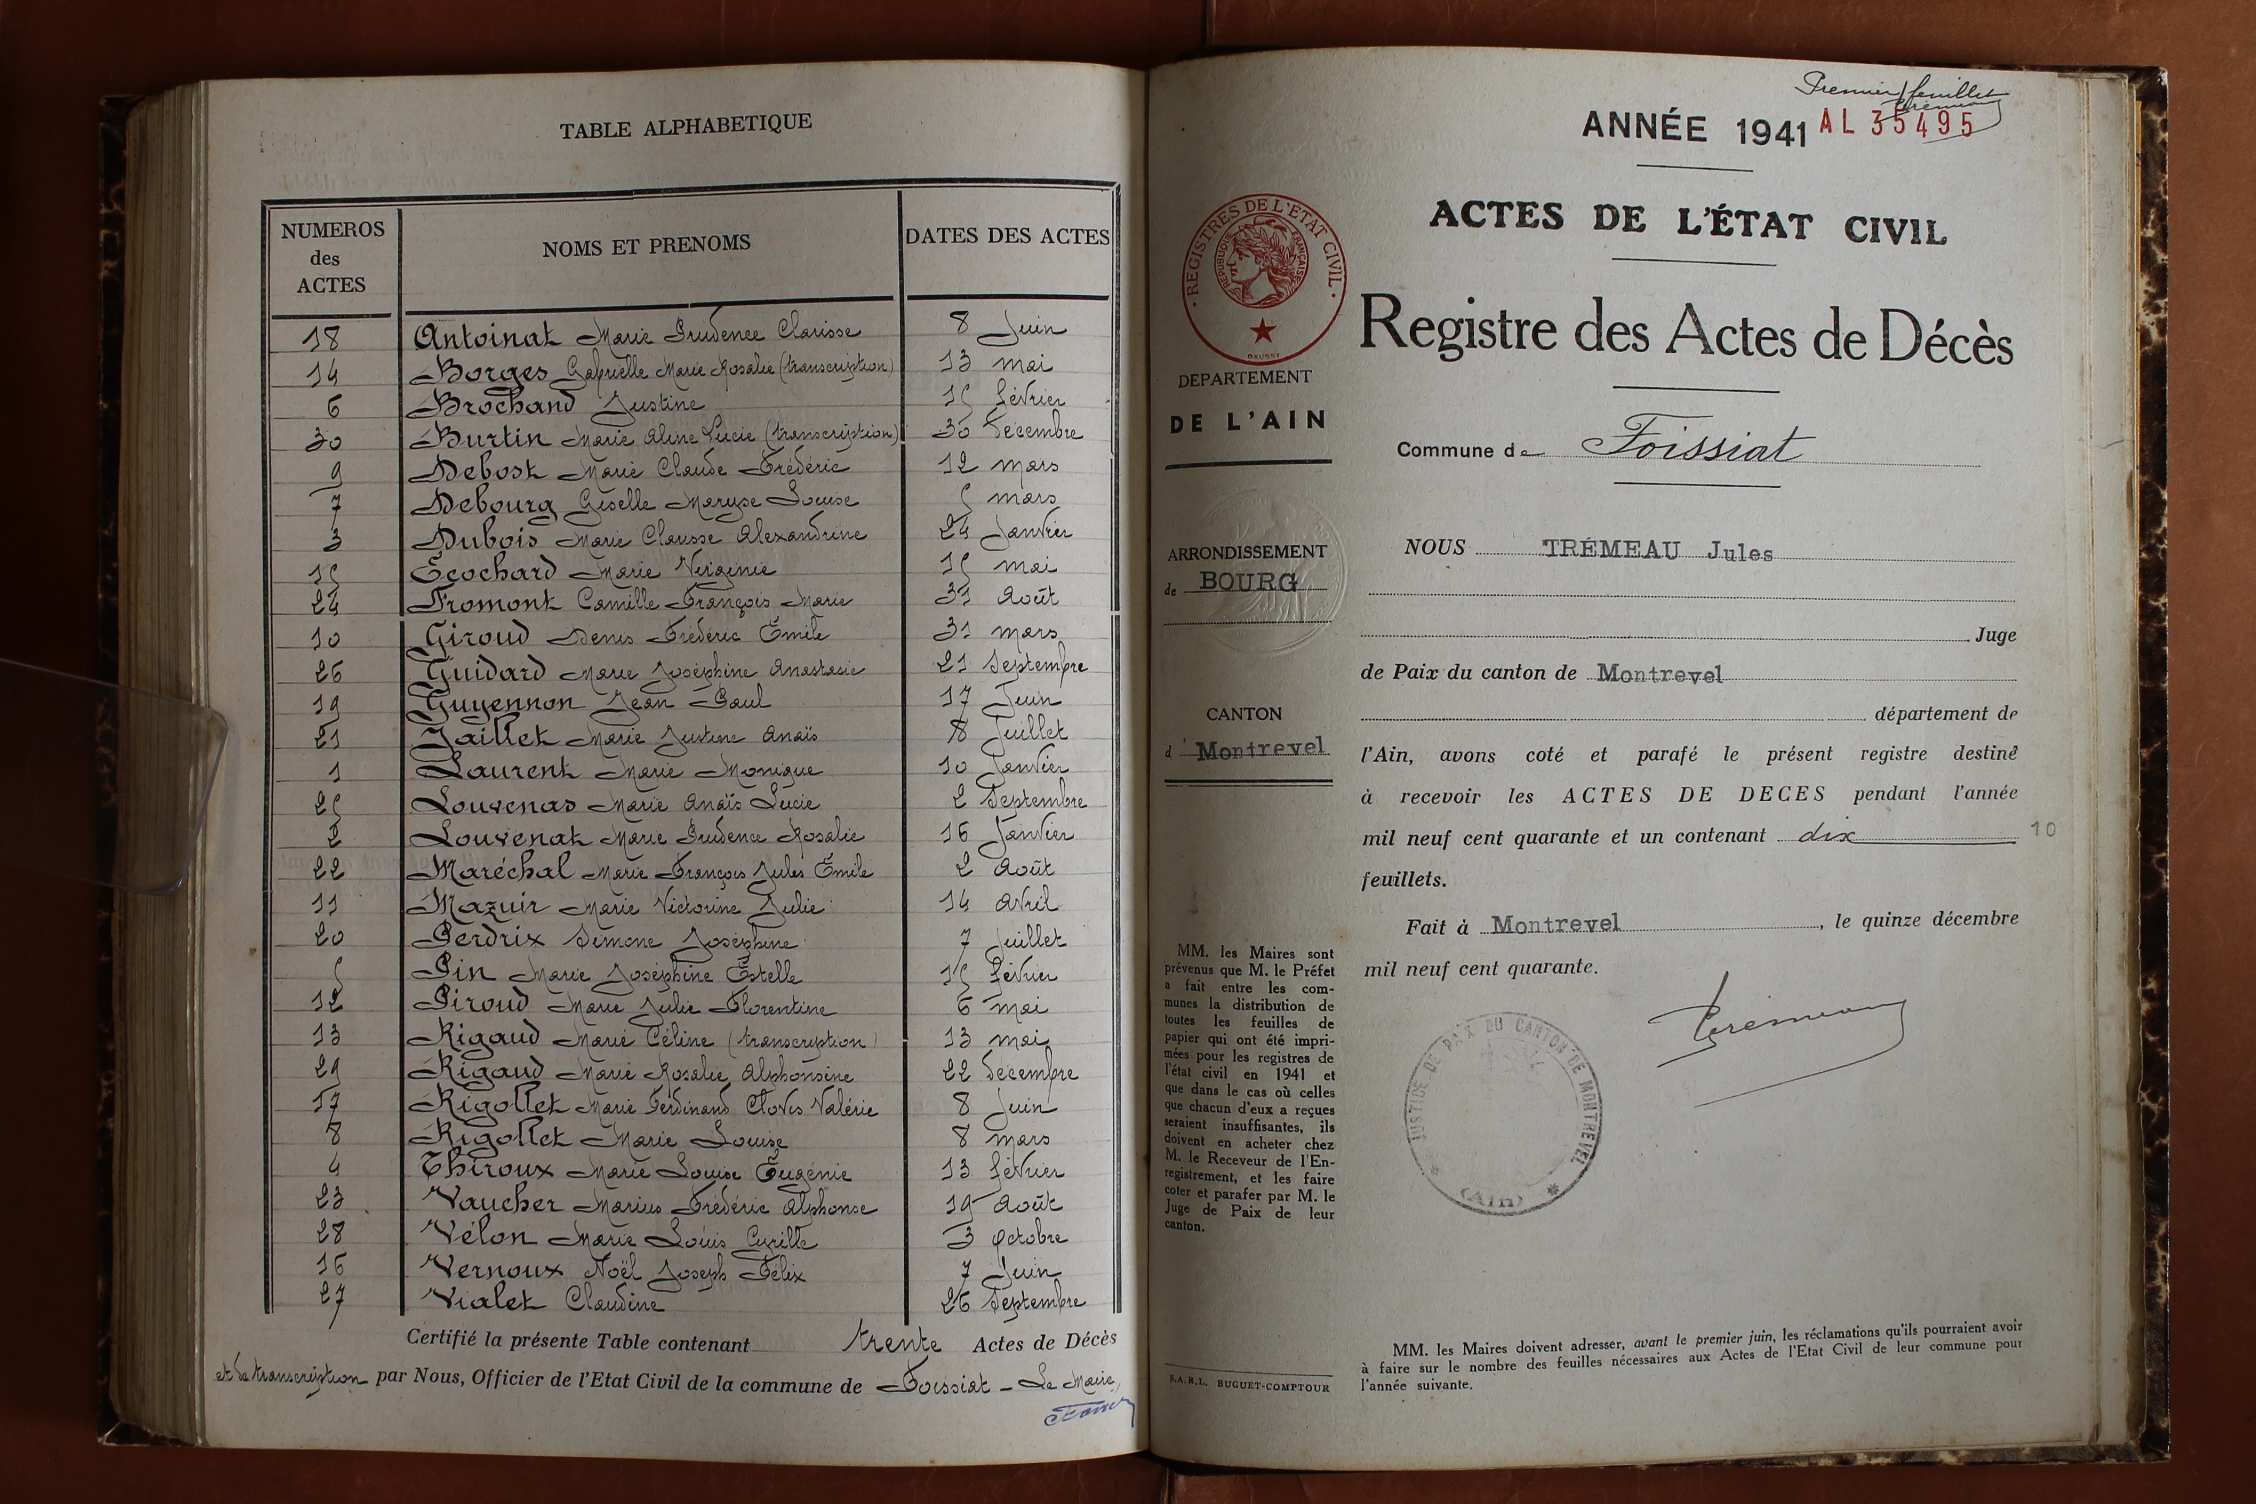 TABLE ALPHABETIQUE
NUMEROS des ACTES NOMS ET PRENOMS DATES DES ACTES
18 Antoinat Marie Prudence Clarisse 8 Juin
14 Borges Gabrielle Marie Rosalie (transcription) 13 mai
6 Brochand Justine 15 Février
30 Burtin Marie Aline Lucie (transcription) 30 Décembre
9 Debost Marie Claude Frédéric 12 mars
7 Debourg Giselle Maryse Louise 5 mars
3 Dubois Marie Clarisse Alexandrine 24 Janvier
15 Ecochard Marie Virginie 15 mai
24 Fromont Camille François Marie 31 Août
10 Giroud Denis Frédéric Emile 31 mars
26 Guidard Marie Joséphine Anastasie 21 Septembre
19 Guyennon Jean Paul 17 Juin
21 Jaillet Marie Justine Anaïs 8 Juillet
1 Laurent Marie Monique 10 Janvier
25 Louvenas Marie Anaïs Lucie 2 Septembre
2 Louvenat Marie Prudence Rosalie 16 Janvier
22 Maréchal Marie François Jules Emile 2 Août
11 Mazuir Marie Victorine Julie 14 Avril
20 Perdrix Simone Joséphine 7 Juillet
5 Pin Marie Joséphine Estelle 15 Février
12 Piroud Marie Julie Florentine 6 mai
13 Rigaud Marie Céline (transcription) 13 mai
29 Rigaud Marie Rosalie Alphonsine 22 Décembre
17 Rigollet Marie Ferdinand Clovis Valérie 8 Juin
8 Rigollet Marie Louise 8 mars
4 Thiroux Marie Louise Eugénie 13 Février
23 Vaucher Marius Frédéric Alphonse 19 Août
28 Vélon Marie Louis Cyrille 3 Octobre
16 Vernoux Noël Joseph Félix 7 Juin
27 Vialet Claudine 26 Septembre
Certifié la présente Table contenant trente Actes de Décès
et la transcription par Nous, Officier de l'Etat Civil de la commune de Foissiat - Le Maire,
Premier feuillet
Trémeau
ANNÉE 1941 AL 35495
ACTES DE L'ÉTAT CIVIL
Registre des Actes de Décès
Commune de Foissiat
· REGISTRES DE L'ETAT CIVIL ·
REPUBLIQUE FRANÇAISE
DEPARTEMENT
DE L'AIN
ARRONDISSEMENT
de BOURG
CANTON
d Montrevel
MM. les Maires sont
prévenus que M. le Préfet
a fait entre les com-
munes la distribution de
toutes les feuilles de
papier qui ont été impri-
mées pour les registres de
l'état civil en 1941 et
que dans le cas où celles
que chacun d'eux a reçues
seraient insuffisantes, ils
doivent en acheter chez
M. le Receveur de l'En-
registrement, et les faire
coter et parafer par M. le
Juge de Paix de leur
canton.
S.A.R.L. BUGUET-COMPTOUR
NOUS TRÉMEAU Jules
Juge
de Paix du canton de Montrevel
département de
l'Ain, avons coté et parafé le présent registre destiné
à recevoir les ACTES DE DECES pendant l'année
mil neuf cent quarante et un contenant dix 10
feuillets.
Fait à Montrevel, le quinze décembre
mil neuf cent quarante.
Trémeau
JUSTICE DE PAIX DU CANTON DE MONTREVEL
* (Ain) *
MM. les Maires doivent adresser, avant le premier juin, les réclamations qu'ils pourraient avoir
à faire sur le nombre des feuilles nécessaires aux Actes de l'Etat Civil de leur commune pour
l'année suivante.